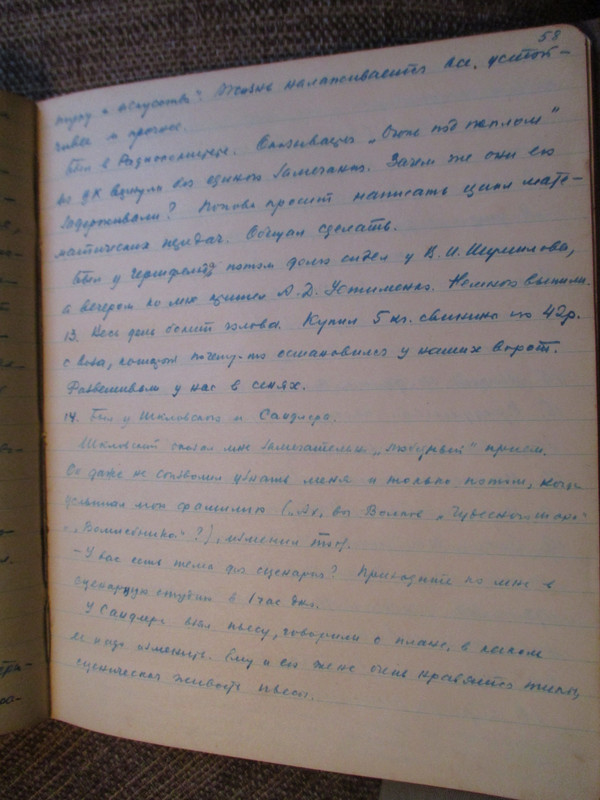 58
науку и искусство? Жизнь налаживается все устой-
чивее и прочнее.
Был в Радиокомитете. Оказывается „Огонь под пеплом"
из ЦК вернули без единого замечания. Зачем же они его
задерживали? Попова просит написать цикл мате-
матических передач. Обещал сделать.
Был у потом долго сидел у В. И. Шумилова,
а вечером ко мне пришел А. Д. Устименко. Немного выпили.
13. Весь день болит голова. Купил 5 кг. свинины по 42 р.
с воза, который почему-то остановился у наших ворот.
Развешивали у нас в сенях.
14. Был у Шкловского и Сандлера.
Шкловский оказал мне замечательно „любезный" прием.
Он даже не соизволил узнать меня и только потом, когда
услышал мою фамилию („Ах, вы Волков „Чудесного шара"
и „Волшебника"?), изменил тон.
– У вас есть тема для сценария? Приходите ко мне в
сценарную студию в 1 час дня.
У Сандлера взял пьесу, говорили о плане, в каком
ее надо изменить. Ему и его жене очень нравятся типы,
сценическая живость пьесы.